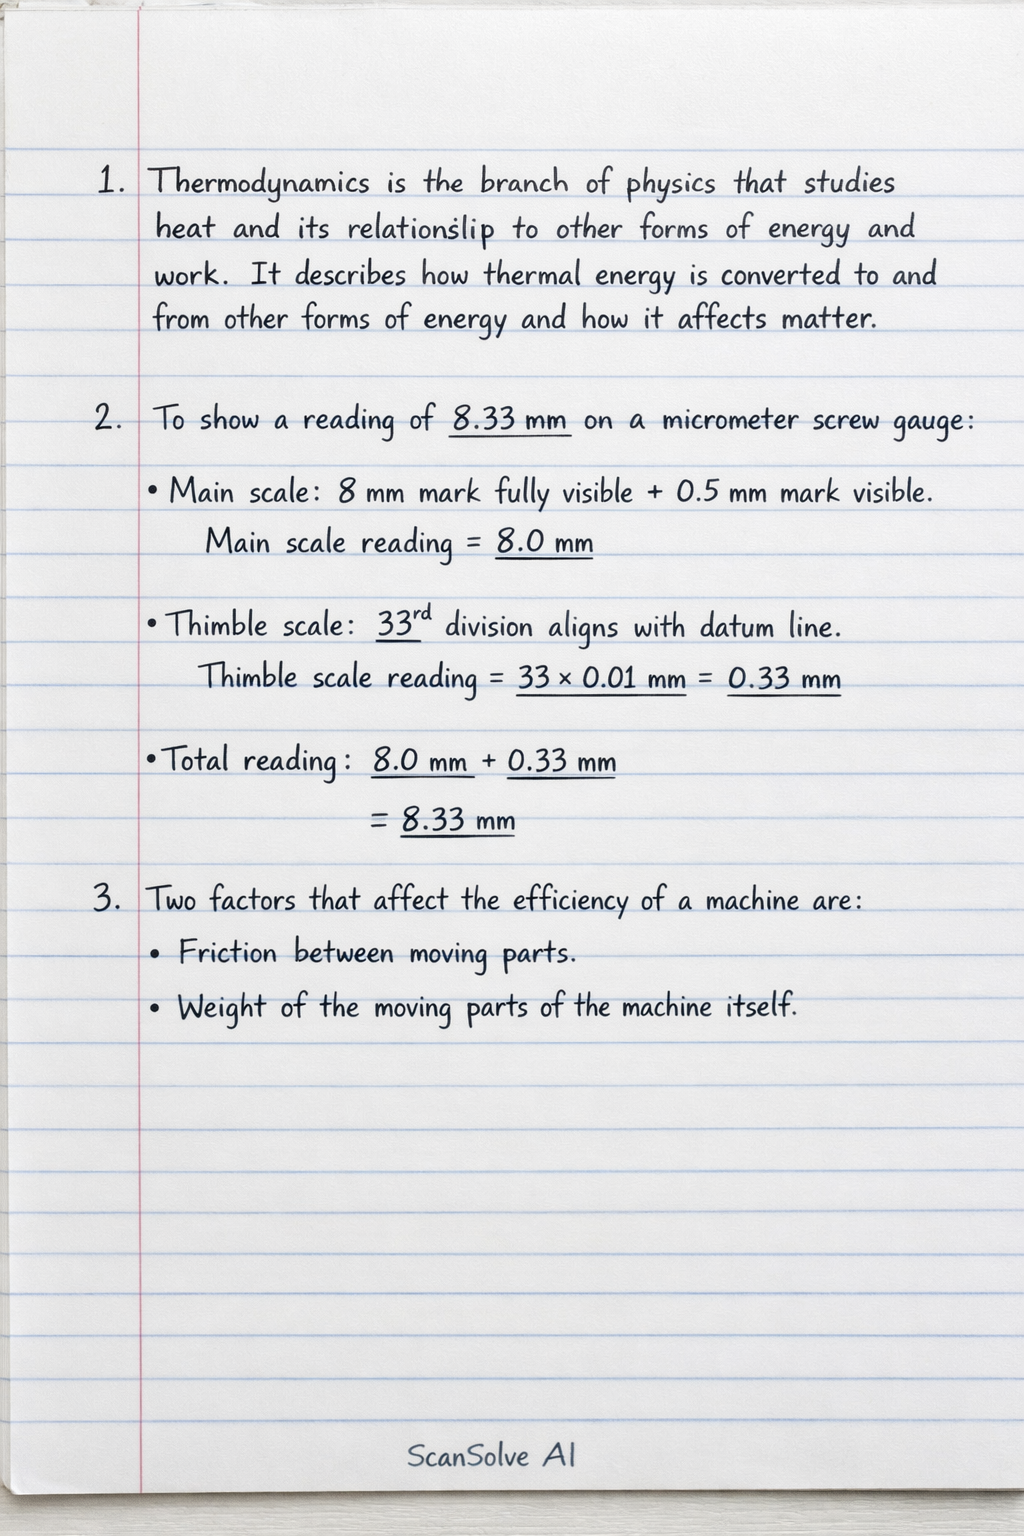 1. Thermodynamics is the branch of physics that studies
heat and its relationslip to other forms of energy and
work. It describes how thermal energy is converted to and
from other forms of energy and how it affects matter.
2. To show a reading of 8.33 mm on a micrometer screw gauge:
• Main scale: 8 mm mark fully visible + 0.5 mm mark visible.
Main scale reading = 8.0 mm
• Thimble scale: 33rd division aligns with datum line.
Thimble scale reading = 33 × 0.01 mm = 0.33 mm
• Total reading: 8.0 mm + 0.33 mm
= 8.33 mm
3. Two factors that affect the efficiency of a machine are:
• Friction between moving parts.
• Weight of the moving parts of the machine itself.
ScanSolve AI